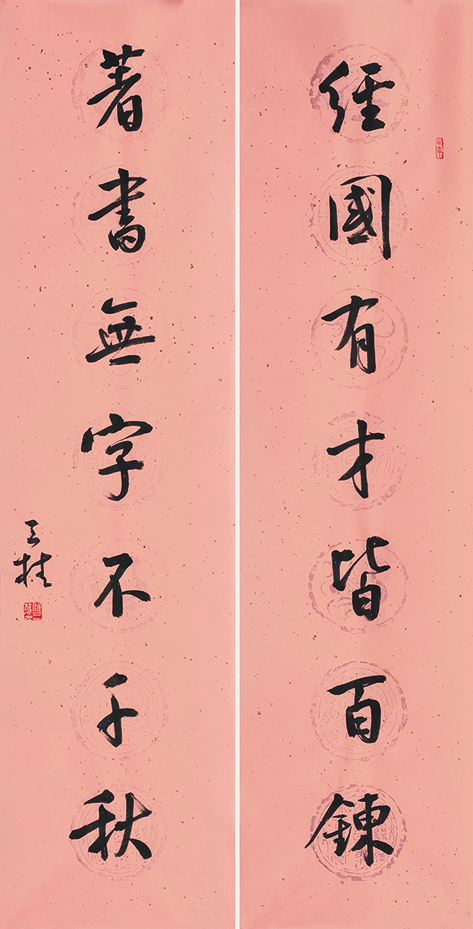 經國有才皆百鍊
著書無字不千秋